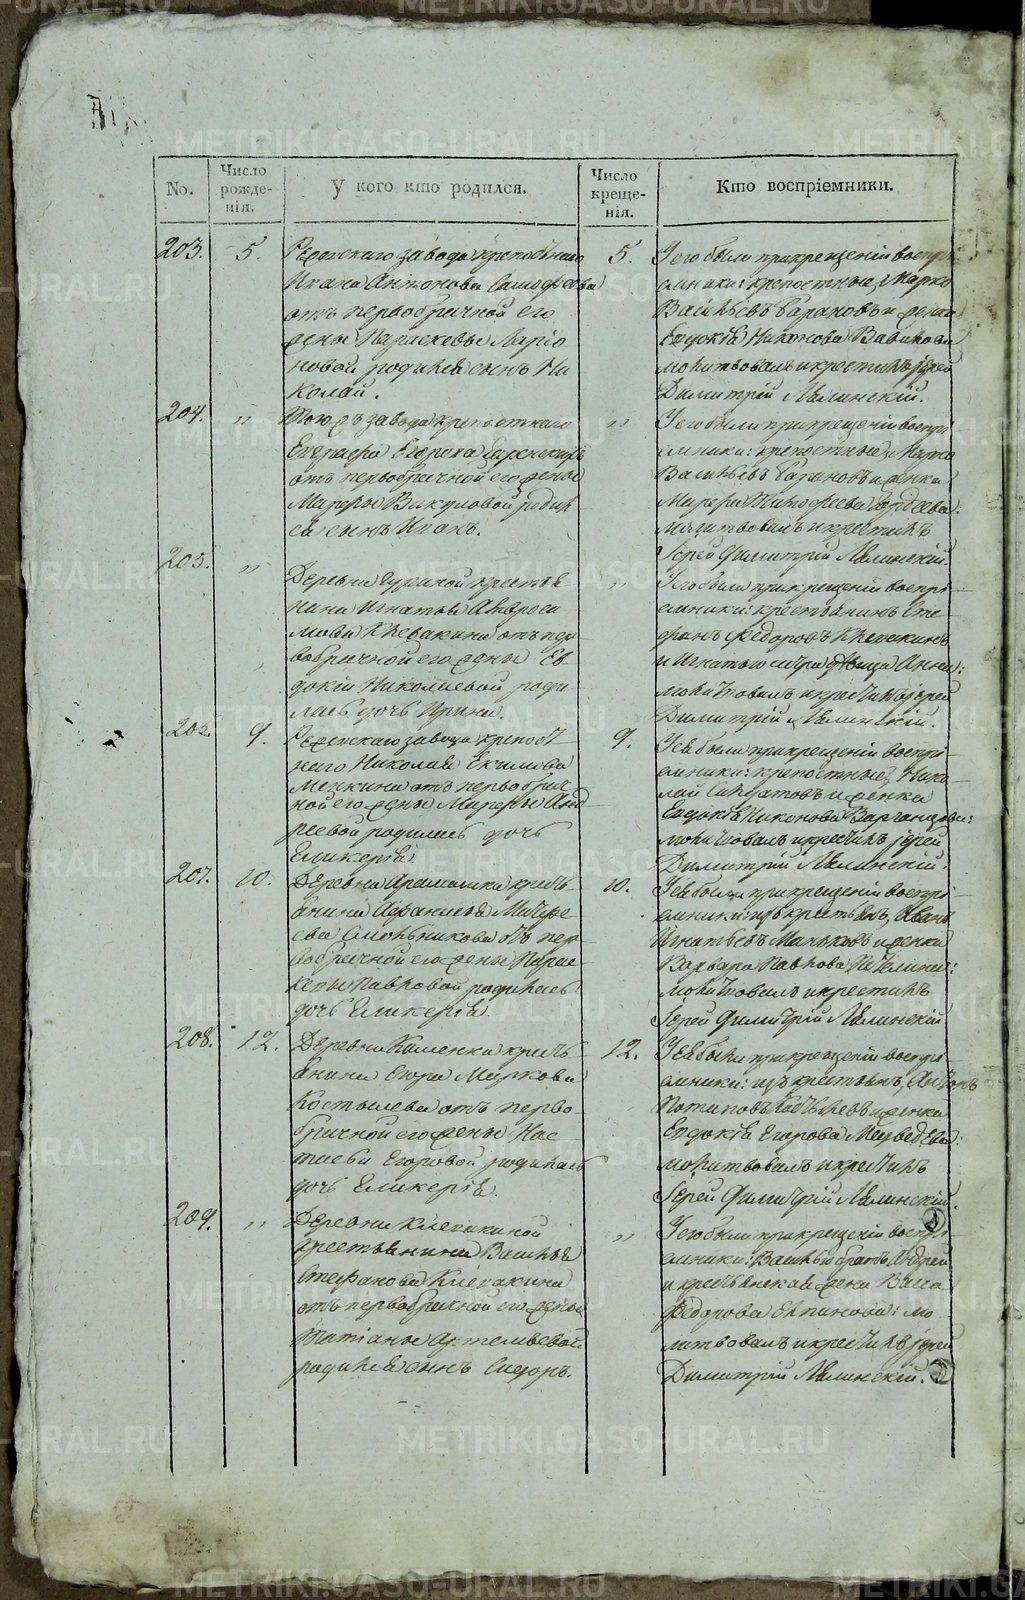 No.
Число рожде-нія.
У кого кто родился.
Число креще-нія.
Кто воспріемники.
203.
5.
Режевскаго завода крепостнаго
Ивана Антонова
отъ первобрачной его
жены Параскевьи Ларіо
новой родился сынъ Ни
колай.
5.
У его были при крещеніи воспрі
емники: крепостные, Марко
Васильевъ Барановъ и женка
Евдокія Никонова
молитвовалъ и крестилъ іерей
Димитрій Лялинскій.
204.
„
Того жъ завода крепостнаго
Евграфа Егорова
отъ первобрачной его жены
Марфы Вакуловой родил
ся сынъ Иванъ.
„
У его были при крещеніи воспрі
емники: крепостные, Марко
Васильевъ Барановъ и женка
Марфа Тимофеева
молитвовалъ и крестилъ
Іерей Димитрій Лялинскій.
205.
„
Деревни крестья
нина Игнатья Амвроси
мова Клевакина отъ пер
вобрачной его жены Ев
докіи Николаевой роди
лась дочь Ирина.
„
У его были при крещеніи воспрі
емники: крестьянинъ Сте
фанъ Федоровъ
и Игнатьюю сестра девица Анна:
молитвовалъ и крестилъ іерей
Димитрій Лялинскій.
206.
9.
Режевскаго завода крепост
наго Николая Екимова
отъ первобрач
ной его жены Марфы Анд
реевой родилась дочь
Гликерія.
9.
У ея были при крещеніи воспрі
емники: крепостные, Нико
лай и женка
Евдокія Никонова
молитвовалъ и крестилъ іерей
Димитрій Лялинскій.
207.
10.
Деревни Арамашка кресть
янина Афанасья Матфе
ева Смольникова отъ пер
вобрачной его жены Парас
кевьи Павловой родилась
дочь Гликерія.
10.
У ея были при крещеніи воспрі
емники: изъ крестьянъ, Иванъ
Игнатьевъ Маньковъ и женка
Варвара Павлова
молитвовалъ и крестилъ
Іерей Димитрій Лялинскій
208.
12.
Деревни Каменки кресть
янина Егора Маркова
Костылева отъ перво
брачной его жены Нас
тасьи Егоровой родилась
дочь Гликерія.
12.
У ея были при крещеніи воспрі
емники: изъ крестьянъ, Антонъ
Потаповъ и женка
Евдокія Егорова Медведева:
молитвовалъ и крестилъ
Іерей Димитрій Лялинскій.
209.
„
Деревни Клевакиной
крестьянина Василья
Стефанова Клевакина
отъ первобрачной его жены
Татіаны Артемьевой
родился сынъ Сидоръ.
„
У его были при крещеніи воспрі
емники: Василью братъ Андрей
и крестьянская жена Васса
Федорова мо
литвовалъ и крестилъ іерей
Димитрій Лялинскій.
METRIKI.GASO-URAL.RU